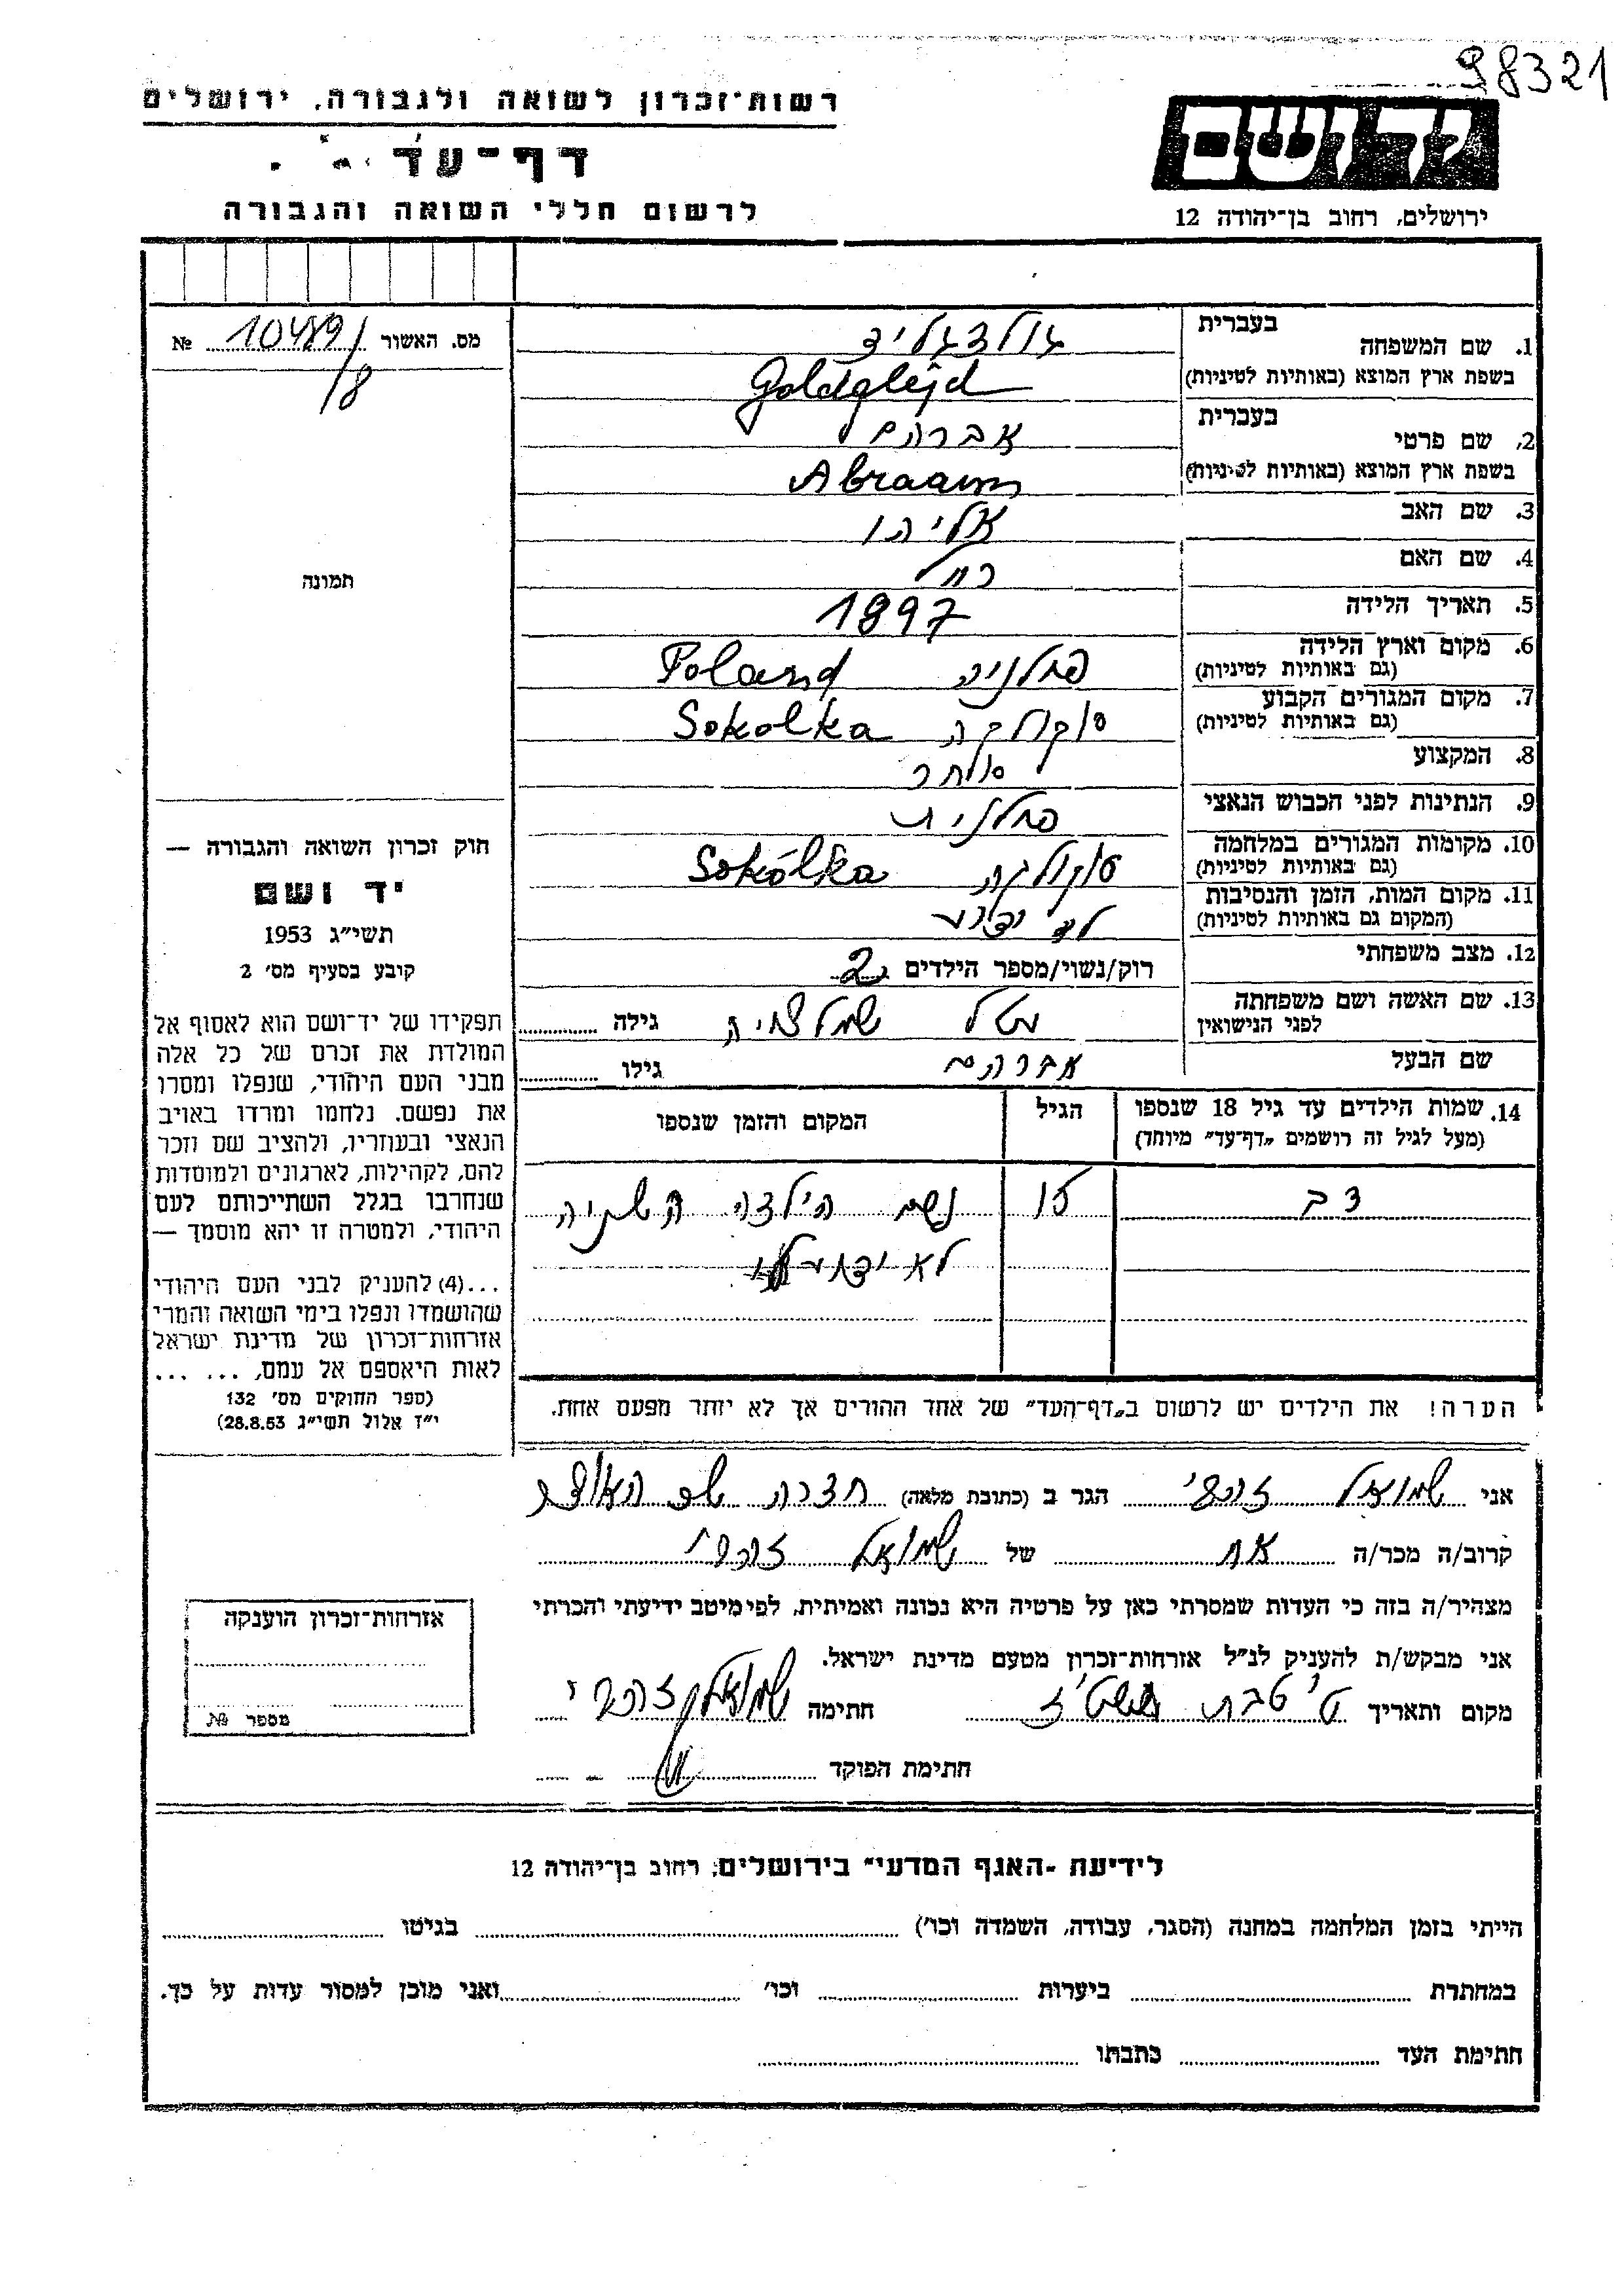 98321
רשות־זכרון לשואה ולגבורה, ירושלים
דף־עד
לרשום חללי השואה והגבורה
יד ושם
ירושלים, רחוב בן־יהודה 12
מס. האשור 10489/8 №
תמונה
חוק זכרון השואה והגבורה —
יד ושם
תשי״ג 1953
קובע בסעיף מס׳ 2
תפקידו של יד־ושם הוא לאסוף אל
המולדת את זכרם של כל אלה
מבני העם היהודי, שנפלו ומסרו
את נפשם, נלחמו ומרדו באויב
הנאצי ובעוזריו, ולהציב שם וזכר
להם, לקהילות, לארגונים ולמוסדות
שנחרבו בגלל השתייכותם לעם
היהודי, ולמטרה זו יהא מוסמך —
...(4) להעניק לבני העם היהודי
שהושמדו ונפלו בימי השואה והמרי
אזרחות־זכרון של מדינת ישראל
לאות היאספם אל עמם, ... ...
(ספר החוקים מס׳ 132
י״ד אלול תשי״ג 28.8.53)
1. שם המשפחה בעברית גולדגליד
בשפת ארץ המוצא (באותיות לטיניות) Goldglejd
2. שם פרטי בעברית אברהם
בשפת ארץ המוצא (באותיות לטיניות) Abraam
3. שם האב אליהו
4. שם האם רחל
5. תאריך הלידה 1897
6. מקום וארץ הלידה (גם באותיות לטיניות) פולניה Poland
7. מקום המגורים הקבוע (גם באותיות לטיניות) סוקולקה Sokolka
8. המקצוע סוחר
9. הנתינות לפני הכבוש הנאצי פולנית
10. מקומות המגורים במלחמה (גם באותיות לטיניות) סוקולקה Sokólka
11. מקום המות, הזמן והנסיבות (המקום גם באותיות לטיניות) לא ידוע
12. מצב משפחתי רוק/נשוי/מספר הילדים 2
13. שם האשה ושם משפחתה לפני הנישואין גילה
שם הבעל אברהם גילו
14. שמות הילדים עד גיל 18 שנספו (מעל לגיל זה רושמים „דף־עד״ מיוחד) הגיל המקום והזמן שנספו
דב 15 הילדה השניה
לא ידוע לי
הערה! את הילדים יש לרשום ב„דף־העד״ של אחד ההורים אך לא יותר מפעם אחת.
אני שמואל זהבי הגר ב (כתובת מלאה) חדרה
קרוב/ה מכר/ה אח של שמואל זהבי
מצהיר/ה בזה כי העדות שמסרתי כאן על פרטיה היא נכונה ואמיתית, לפי מיטב ידיעתי והכרתי
אני מבקש/ת להעניק לנ״ל אזרחות־זכרון מטעם מדינת ישראל.
מקום ותאריך ט' טבת תשט"ז חתימה שמואל זהבי
חתימת הפוקד
אזרחות־זכרון הוענקה
מספר №
לידיעת „האגף המדעי״ בירושלים, רחוב בן־יהודה 12
הייתי בזמן המלחמה במחנה (הסגר, עבודה, השמדה וכו׳) בגיטו
במחתרת ביערות וכו׳ ואני מוכן למסור עדות על כך.
חתימת העד כתבתו